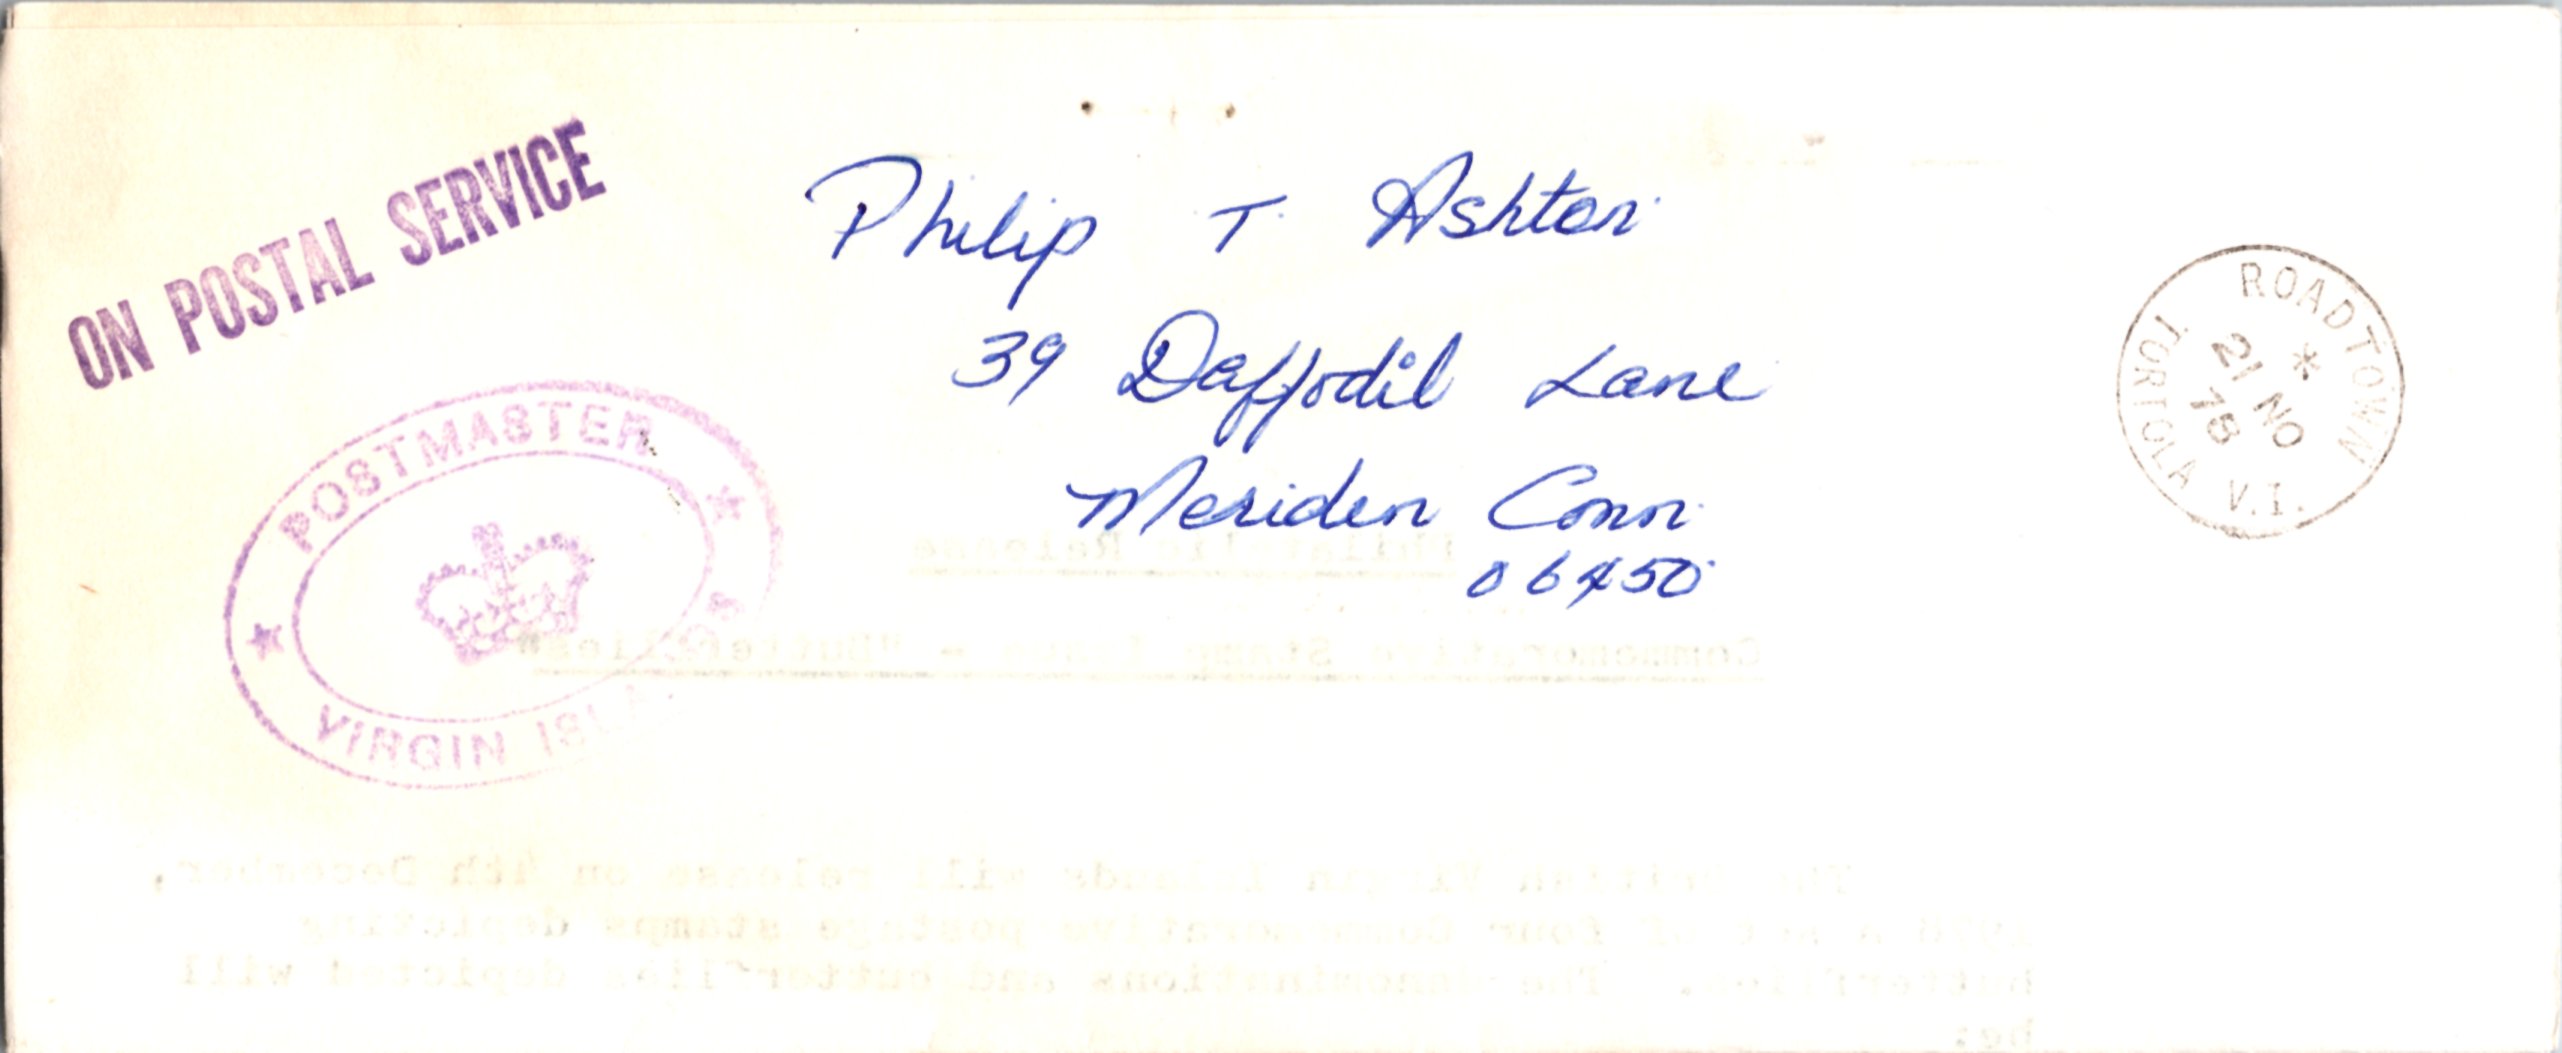 ON POSTAL SERVICE
Philip T. Ashton
39 Daffodil Lane
Meriden Conn.
06450
ROADTOWN
*
21 NO
78
TORTOLA V.I.
POSTMASTER
VIRGIN
Philatelic Release
Commemorative Stamp Issue - "Butterflies"
The British Virgin Islands will release on 4th December,
1978 a set of four Commemorative postage stamps depicting
butterflies. The denominations and butterflies depicted will
be: